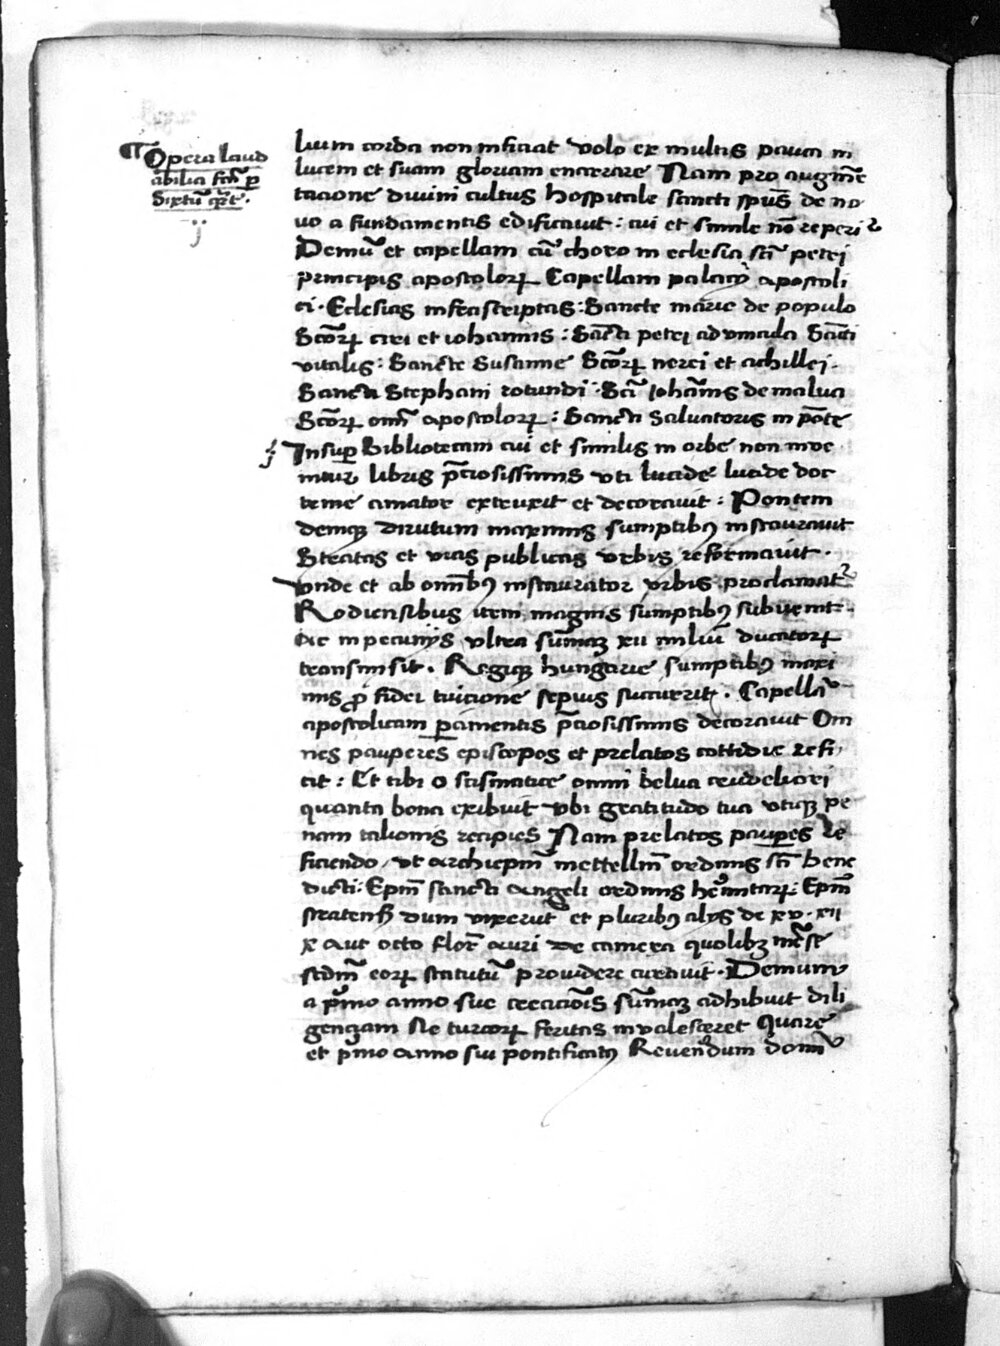 ¶ Opera laud
abilia fcā p
Sixtū qrt̄.
j
lium corda non inficiat volo ex multis pauca in
lucem et suam gloriam enarrare Nam pro augmē
tacione divini cultus hospitale sancti spūs de no
vo a fundamentis edificavit : cui et simile nō reperir̉
Demū et capellam cū choro in eclesia sc̄ti petri
principis apostoloꝝ Capellam palacij apostoli
ci. Eclesias infrascriptas : Sancte marie de populo
Sc̄oꝝ ciri et iohannis : Sācti petri ad vincula Sācti
vitalis : Sancte Susanne Sc̄oꝝ nerei et achillei.
Sancti Stephani rotundi : Sc̄i Iohānis de malua
Sc̄oꝝ om̄ apostoloꝝ : Sancti Salvatoris in pōte
Insuꝑ Bibliotecam cui et similis in orbe non inve
nitur libris p̄ciosissimis uti lucide lucide doc
trine amator extruxit et decoravit : Pontem
demqꝫ dirutum maximis sumptibꝰ instauravit
Stratas et vias publicas vrbis reformavit.
vnde et ab om̄ibꝰ instaurator vrbis proclamat̉
Rodiensibus item magnis sumptibꝰ subvenit.
Ac in pecunijs vltra sūmaꝫ xii miliū ducatoꝝ
transmisit. Regiqꝫ hungarie sumptibꝰ maxi
mis ꝓ fidei tuicione sepius succurrit. Capellā
apostolicam ꝑamentis p̄ciosissimis decoravit Om
nes pauperes episcopos et prelatos cottidie refi
cit : Et tibi o scismatice omni belua crudeliori
quanta bona exibuit vbi gratitudo tua vtiqꝫ pe
nam talionis recipies Nam prelatos pauꝑes re
ficiendo, vt archiepm̄ mettellin̄ ordinis sc̄i bene
dicti : Epm̄ sancti Angeli ordinis herēmitaꝝ : Epm̄
straten̄ dum vixerūt et pluribꝰ alijs de xv. xii
x aut octo flor̄ auri de camera quolibꝫ mēse
scdm̄ eoꝝ statutū providere curavit. Demum
a p̄mo anno sue creaciōis sūmaꝫ adhibuit dili
genciam Ne turcoꝝ feritas invalesceret Quare
et p̄mo anno sui pontificatꝰ Reverēdum domī